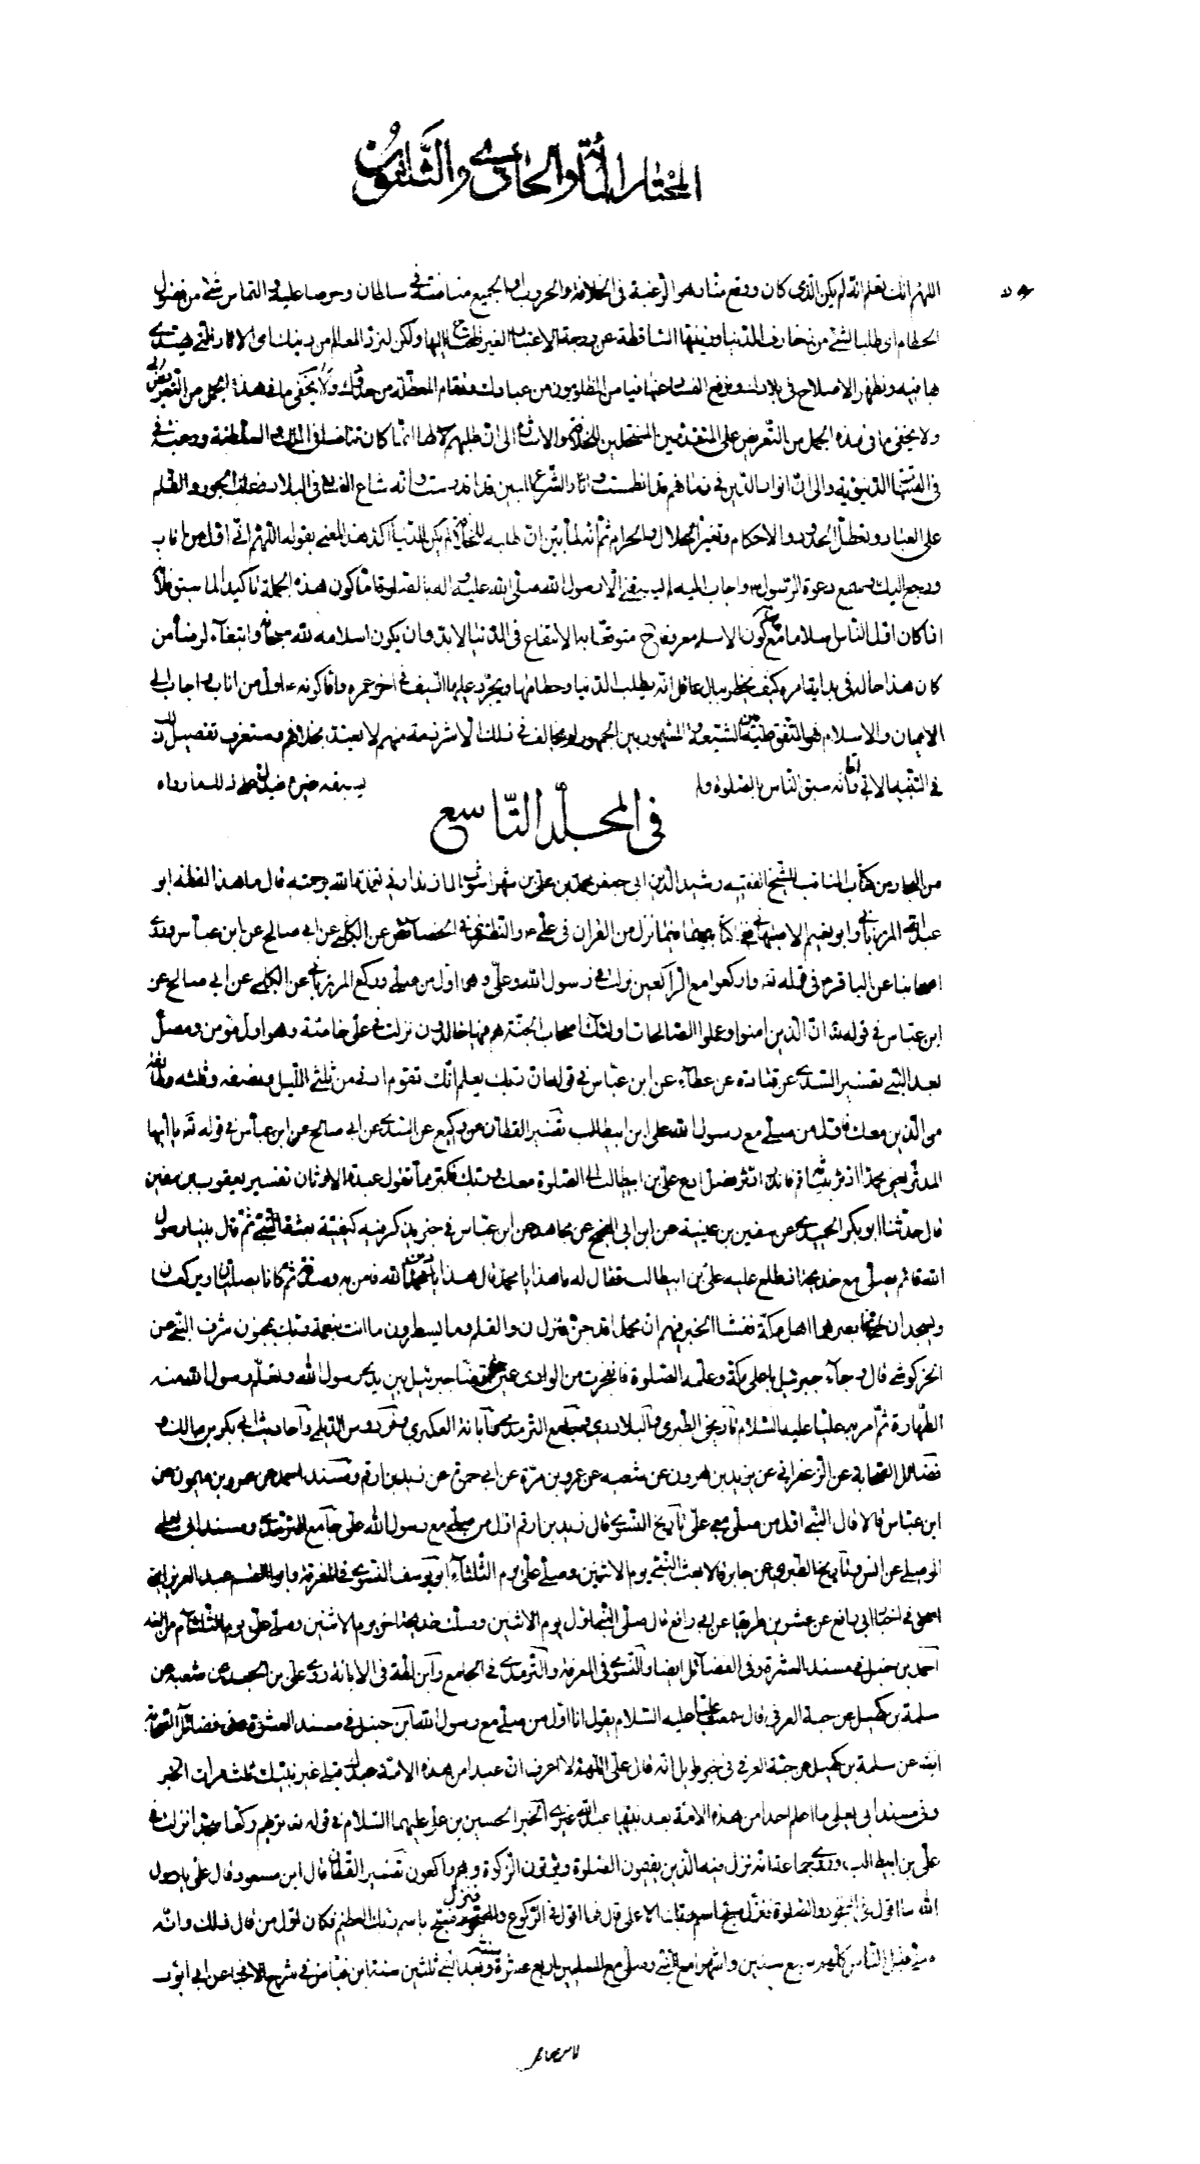 المختار المأة والحادي والثلثون
اللهم انك تعلم انه لم يكن الذي كان ووقع مثاره هو الرغبة في الخلافة والحروب او الجميع منافسة في سلطان وحرصا عليه والتماس شيء من فضول
الحطام اي طلبا لشيء من زخارف الدنيا وزينتها الساقطة عن درجة الاعتبار الغير الها ولكن لنرد المعالم من دينك اي الاثار التي يهتدى
بها فيه ونظهر الاصلاح في بلادك ونرفع الفساد عنها فيامن المظلومون من عبادك وتقام المعطلة من حدودك ولا يخفى ما في هذه الجمل من التعريض
ولا يخفى ما في هذه الجمل من التعريض على المتقدمين المنتحلين للخلافة والاشارة الى ان طلبهم لها انما كان تنافسا في الملك والسلطنة ورغبة في
في القنيات الدنيوية والى ان انوار الدين في زمانهم قد انطمست واثار الشرع المبين قد اندرست وانه شاع الفساد في البلاد وغلب الجور والظلم
على العباد وتعطل الحدود والاحكام وتغير الحلال والحرام ثم انه لما بين ان طلبه للخلافة لم يكن للدنيا اكد هذا المعنى بقوله اللهم اني اول من اناب
ورجع اليك وسمع دعوة الرسول واجاب اليه لم يسبقني الا رسول الله صلى الله عليه واله بالصلوة فاما كون هذه الجملة تاكيدا لما سبق فلانه
اذا كان اول الناس اسلاما مع كون الاسلام متوقعا به الانتفاع في الدنيا لابد وان يكون اسلامه لله سبحانه وابتغاء لمرضاته ومن
كان هذا حاله في بداية امره كيف يخطر ببال عاقل انه يطلب الدنيا وحطامها ويجرد عليها السيف في اخر عمره واما كونه ع اول من اناب واجاب الى
الايمان والاسلام فهو المتفق عليه بين الشيعة والمشهور بين الجمهور لم يخالف في ذلك الا شرذمة منهم لا يعبؤ بخلافهم وستعرف تفصيل ذلك
في التنبيه الاتي واما انه سبق الناس بالصلوة ولم يسبقه غير رسول الله فلما رواه
في المجلد التاسع
من البحار من كتاب المناقب للشيخ الفقيه رشيد الدين ابي جعفر محمد بن علي بن شهراشوب المازندراني تغمده الله برحمته قال ما هذا لفظه ابو
عبد الله المرزباني وابو نعيم الاصبهاني في كتابيهما فيما نزل من القران في علي ع والنطنزي في الخصائص عن الكلبي عن ابي صالح عن ابن عباس وروى
اصحابنا عن الباقر ع في قوله تع واركعوا مع الراكعين نزلت في رسول الله وعلي وهما اول من صلى وركع المرزباني عن الكلبي عن ابي صالح عن
ابن عباس في قوله تع ان الذين امنوا وعملوا الصالحات اولئك اصحاب الجنة هم فيها خالدون نزلت في علي خاصة وهو اول مؤمن ومصل
بعد النبي تفسير السدي عن قتادة عن عطاء عن ابن عباس في قوله ان ربك يعلم انك تقوم ادنى من ثلثي الليل ونصفه وثلثه وطائفة
من الذين معك فاول من صلى مع رسول الله علي ابن ابيطالب تفسير القطان عن وكيع عن السدي عن ابي صالح عن ابن عباس في قوله تع يا ايها
المدثر يعني محمدا ادثر بثيابه قم فانذر اي فصل وادع علي بن ابيطالب الى الصلوة معك وربك فكبر مما تقول عبدة الاوثان تفسير يعقوب بن سفين
قال حدثنا ابو بكر الحميدي عن سفين بن عيينة عن ابن ابي نجيح عن مجاهد عن ابن عباس في خبر يذكر فيه كيفية بعثة النبي ثم قال بينا رسول
الله قائم يصلي مع خديجة اذ طلع عليه علي بن ابيطالب فقال له ما هذا يا محمد قال هذا دين الله فامن به وصدقه ثم كانا يصليان ويركعان
ويسجدان فابصرهما اهل مكة ففشا الخبر فيهم ان محمدا قد جن فنزل ن والقلم وما يسطرون ما انت بنعمة ربك بمجنون شرف النبي عن
الخركوشي قال وجاء جبرئيل باعلى مكة وعلمه الصلوة فانفجرت من الوادي عين حتى توضا جبرئيل بين يدي رسول الله وتعلم رسول الله منه
الطهارة ثم امر به عليا عليه السلام تاريخ الطبري والبلاذري وجامع الترمذي وابانة العكبري وفردوس الديلمي واحاديث ابي بكر بن مالك و
فضائل الصحابة عن الزعفراني عن يزيد بن هرون عن شعبه عن عمرو بن مرة عن ابي حمزة عن زيد بن ارقم ومسند احمد عن عمرو بن ميمون عن
ابن عباس قالا قال النبي اول من صلى معي علي تاريخ النسوي قال زيد بن ارقم اول من صلى مع رسول الله علي جامع الترمذي ومسند ابي يعلى
الموصلي عن انس وتاريخ الطبري عن جابر قالا بعث النبي يوم الاثنين وصلى علي يوم الثلثاء ابو يوسف النسوي في المعرفة وابو القسم عبد العزيز بن اسحق
في اخبار ابي رافع عن عشرين طريقا عن ابي رافع قال صلى النبي اول يوم الاثنين وصلت خديجة اخر يوم الاثنين وصلى علي يوم الثلثاء من الغد
احمد بن حنبل في مسند العشرة وفي الفضائل ايضا والنسوي في المعرفة والترمذي في الجامع وابن بطة في الابانة روى علي بن الجعد عن شعبة عن
سلمة بن كهيل عن حبة العرني قال سمعت عليا عليه السلام يقول انا اول من صلى مع رسول الله ابن حنبل في مسند العشرة وفي فضائل الصحابة
ايضا عن سلمة بن كهيل عن حبة العرني في خبر طويل انه قال علي اللهم لا اعرف ان عبدا من هذه الامة عبدك قبلي غير نبيك ثلث مرات الخبر
وفي مسند ابي يعلى ما اعلم احدا من هذه الامة بعد نبيها عبد الله غيري الخبر الحسين بن علي عليهما السلام في قوله تع تريهم ركعا سجدا نزلت في
علي بن ابيطالب وروى جماعة انه نزل فيه الذين يقيمون الصلوة ويؤتون الزكوة وهم راكعون تفسير القطان قال ابن مسعود قال علي يا رسول
الله ما اقول في السجود في الصلوة فنزل سبح اسم ربك الاعلى قال فما اقول في الركوع فنزل فسبح باسم ربك العظيم فكان اول من قال ذلك وانه
صلى قبل الناس كلهم سبع سنين واشهرا مع النبي وصلى مع المسلمين اربع عشرة سنة وبعد النبي ثلثين سنة ابن فياض في شرح الاخبار عن ابي ايوب